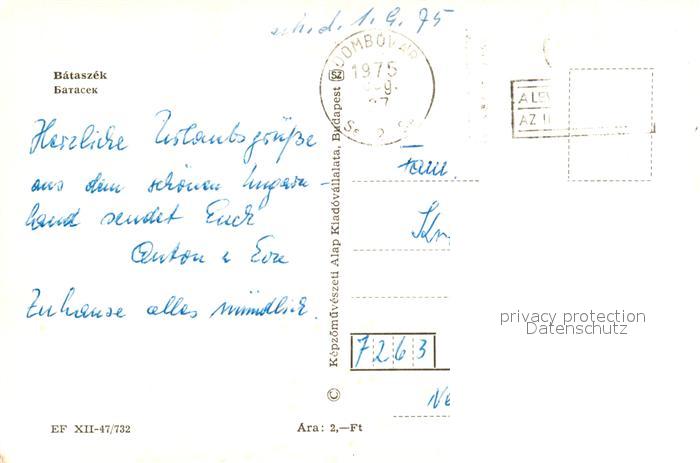 erh. d. 1.9.75
Bátaszék
Батасек
Herzliche Urlaubsgrüße
aus dem schönen Ungarn-
land sendet Euch
Anton u Eva
Zuhause alles mündlich.
DOMBÓVÁR
1975
Képzőművészeti Alap Kiadóvállalata, Budapest
SZ
©
ALEV
AZ I
Fam.
7263
Ne
privacy protection
Datenschutz
EF XII-47/732
Ára: 2,—Ft